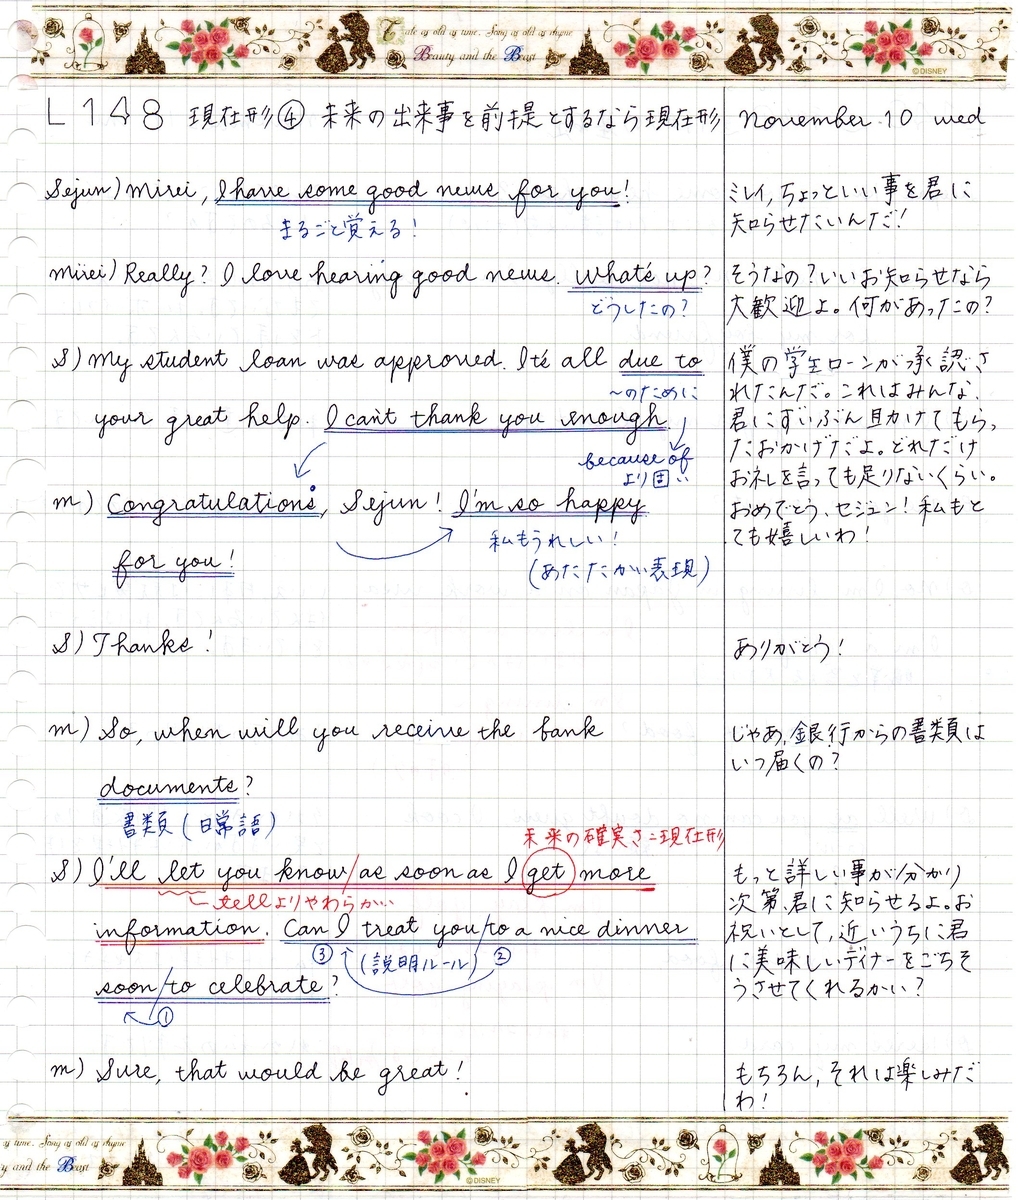 Tale as old as time, Song as old as rhyme
Beauty and the Beast
©DISNEY
L148 現在形④ 未来の出来事を前提とするなら現在形 November 10 wed
Sejun) Mirei, I have some good news for you!
まるごと覚える!
ミレイ,ちょっといい事を君に
知らせたいんだ!
Mirei) Really? I love hearing good news. What's up?
どうしたの?
そうなの?いいお知らせなら
大歓迎よ。何があったの?
S) My student loan was approved. It's all due to
〜のために
your great help. I can't thank you enough
because of
より固い
僕の学生ローンが承認さ
れたんだ。これはみんな、
君にずいぶん助けてもらっ
たおかげだよ。どれだけ
お礼を言っても足りないくらい。
M) Congratulations, Sejun! I'm so happy
私もうれしい!
for you!
(あたたかい表現)
おめでとう、セジュン!私もと
ても嬉しいわ!
S) Thanks!
ありがとう!
M) So, when will you receive the bank
documents?
書類(日常語)
じゃあ,銀行からの書類は
いつ届くの?
未来の確実さ=現在形
S) I'll let you know/as soon as I get more
tellよりやわらかい
information. Can I treat you/to a nice dinner
③ (説明ルール) ②
soon/to celebrate?
①
もっと詳しい事が分かり
次第、君に知らせるよ。お
祝いとして,近いうちに君
に美味しいディナーをごちそ
うさせてくれるかい?
M) Sure, that would be great!
もちろん,それは楽しみだ
わ!
as time, Song as old as rhyme
y and the Beast
©DISNEY
©DISNEY